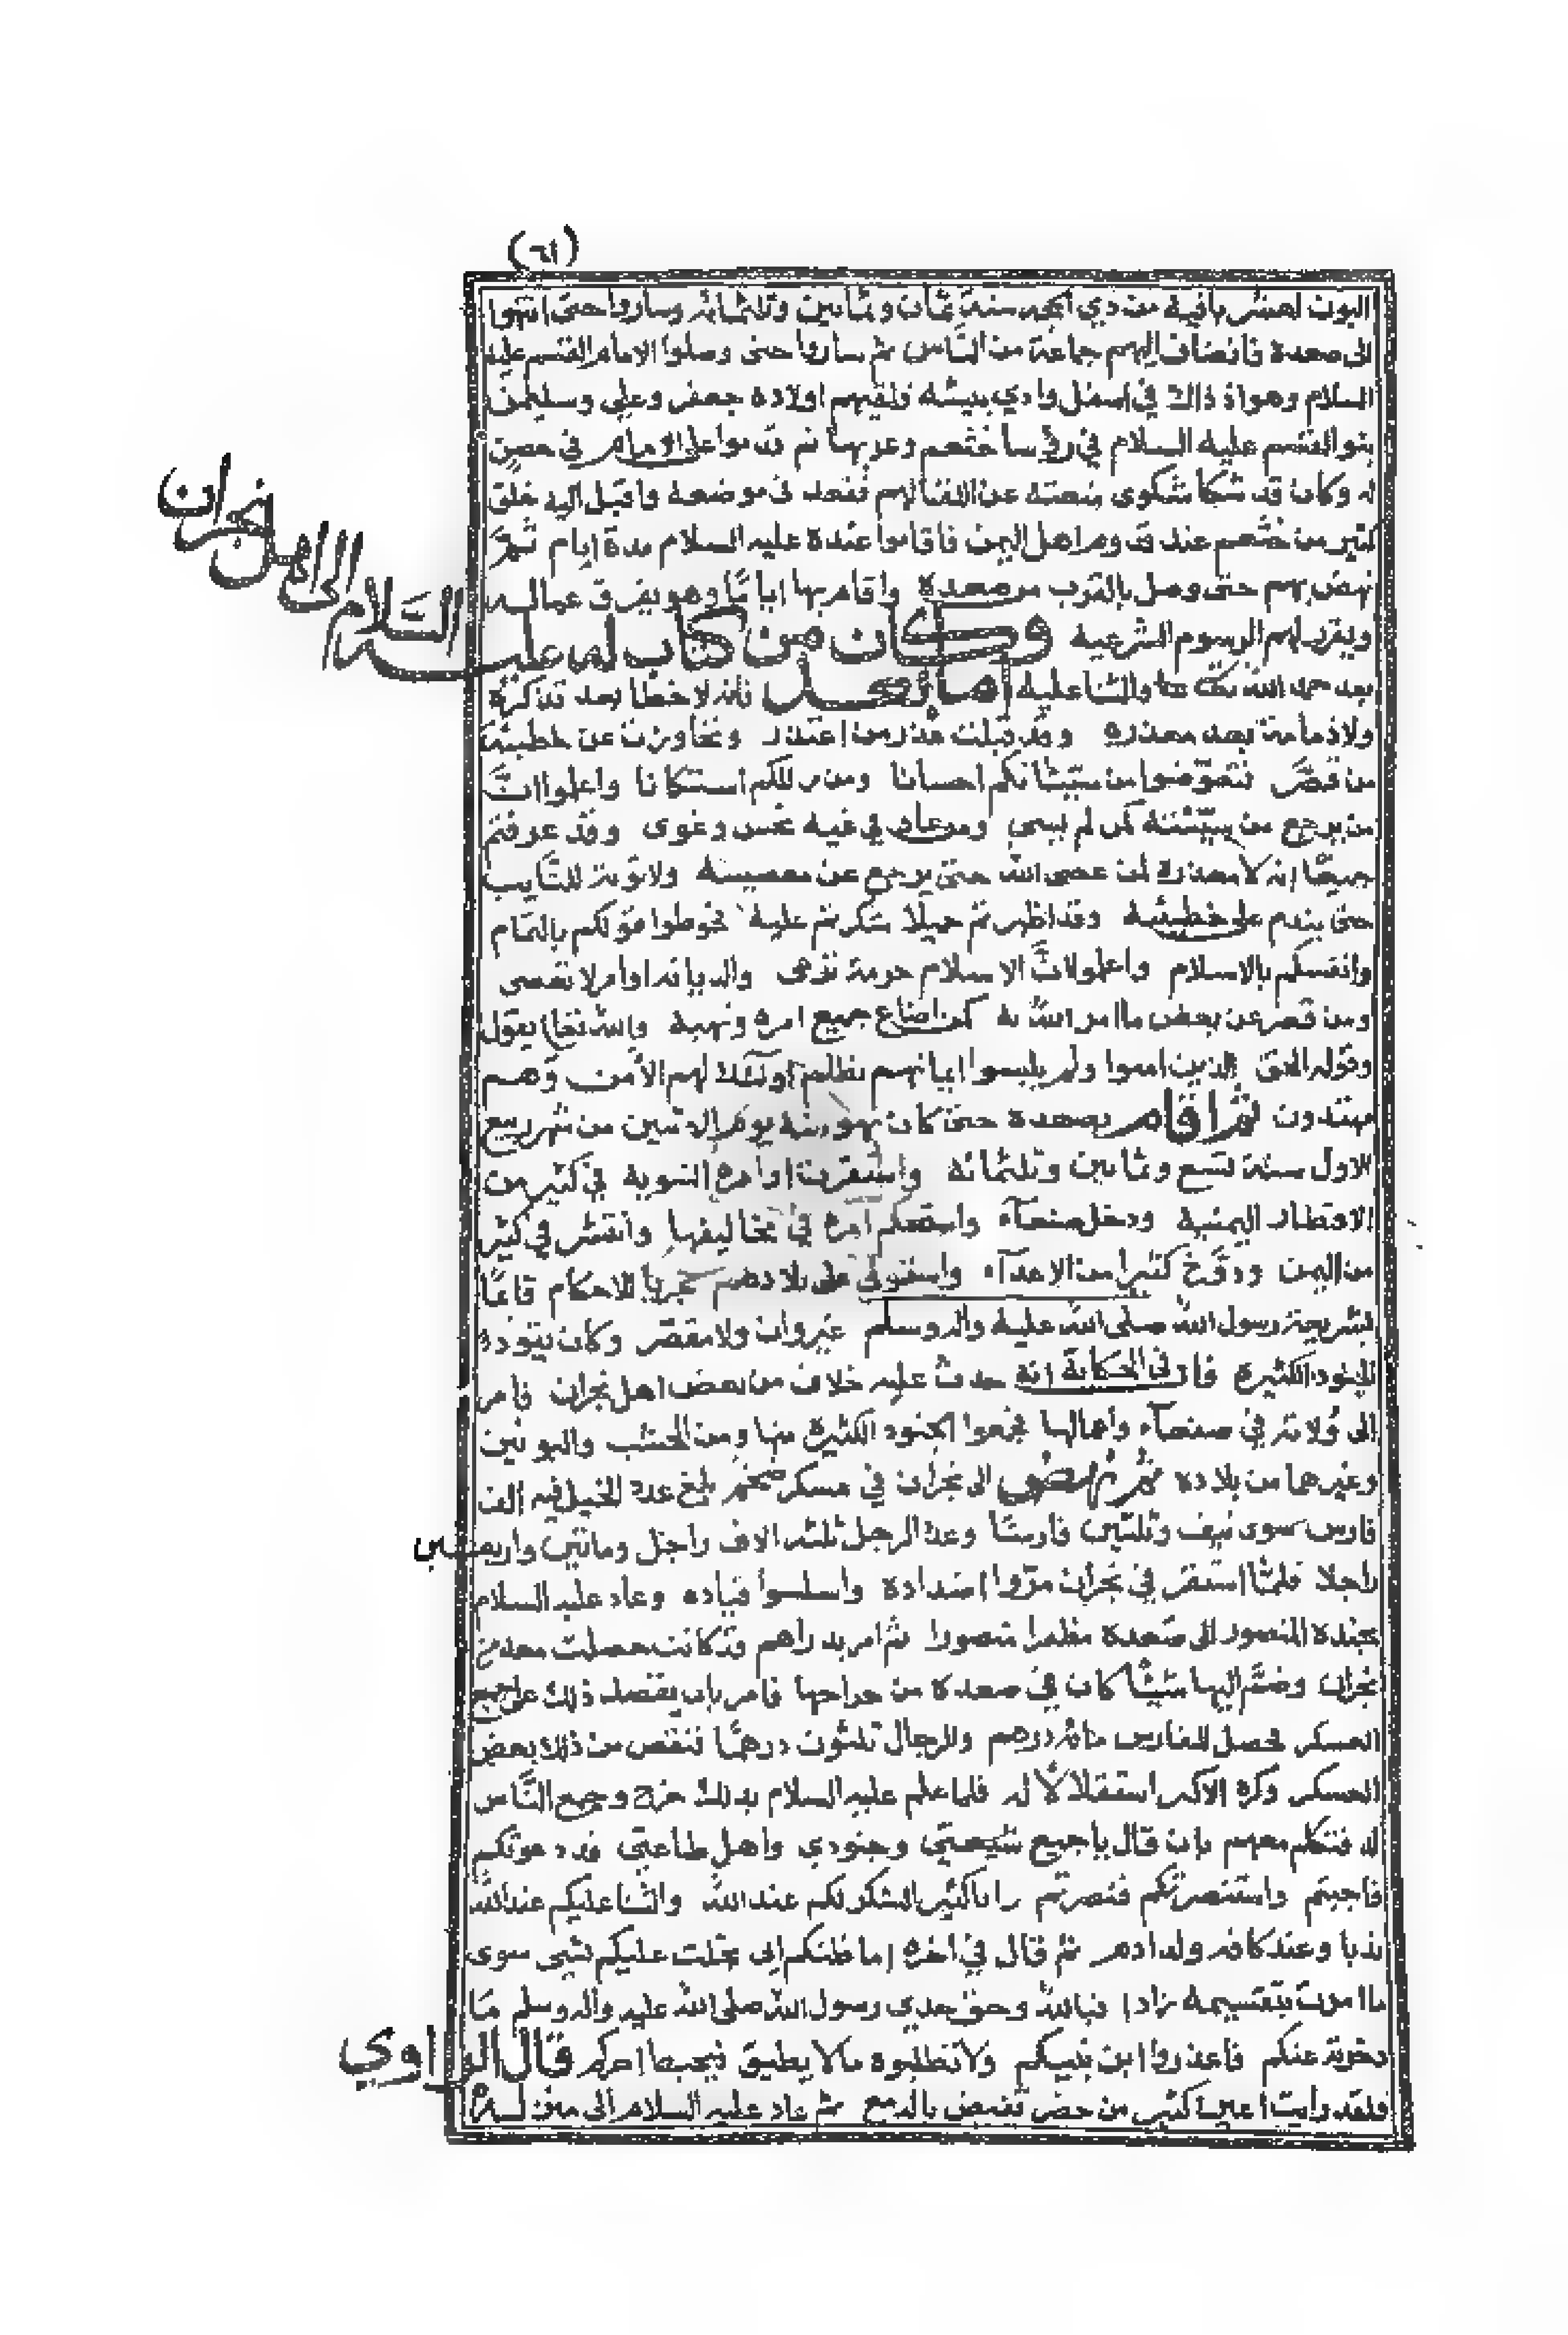 (٦١)
البون لعشر باقية من ذي الحجه سنة ثمان وثمانين وثلثمائه وساروا حتى انتهوا
الى صعدة فانضاف اليهم جماعة من الناس ثم ساروا حتى وصلوا الامام القسم عليه
السلام وهو اذ ذاك في اسفل وادي بيشه ولقيهم اولاده جعفر وعلي وسليمن
بنو القسم عليه السلام في رؤسا خثعم وعربها ثم قدموا على الامام في حصن
له وكان قد شكا شكوى منعته عن اللقا لهم فقعد في موضعه واقبل اليه خلق
كثير من خثعم عند قدوم اهل اليمن فاقاموا عنده عليه السلام مدة ايام ثم
نهض بهم حتى وصل بالقرب من صعدة واقام بها اياما وهو يفرق عماله
ويقرر لهم الرسوم الشرعية وكان من كتاب له عليه السلام الى اهل نجران
بعد حمد الله والثنا عليه اما بعد فانه لا خطا بعد تذكره
ولا ندامة بعد معذره وقد قبلت عذر من اعتذر وتجاوزت عن خطيئة
من قصر فتعوضوا من سيئاتكم احسانا ومن زللكم استكانا واعلموا ان
من يرجع من سيئته كمن لم يسي ومن عاد في غيه نحس وغوى وقد عرفتم
جميعا انه لا معذرة لمن عصى الله حتى يرجع عن معصيته ولا توبة للتايب
حتى يندم على خطيئته وقد اظهرتم جميلا شكرتم عليه فحوطوا قولكم بالتمام
وانفسكم بالاسلام واعلموا ان الاسلام حرمة ترعى والديانه اوامر لا تعصى
ومن قصر عن بعض ما امر الله به كمن اضاع جميع امره ونهيه والله تعالى يقول
وقوله الحق الذين امنوا ولم يلبسوا ايمانهم بظلم اولئك لهم الامن وهم
مهتدون ثم اقام بصعدة حتى كان نهوضه يوم الاثنين من شهر ربيع
الاول سنة تسع وثمانين وثلثمائه واستقرت اوامره النبوية في كثير من
الاقطار اليمنية ودخل صنعآء واستعمل امره في مخاليفها وانتشر في كثير
من اليمن ودوخ كثيرا من الاعدآء واستولى على بلادهم مجريا للاحكام قائما
بشريعة رسول الله صلى الله عليه واله وسلم غير وان ولا مقصر وكان يقود
الجنود الكثيرة قال في الحكاية انه حدث عليه خلاف من بعض اهل نجران فامر
الى ولاته في صنعآء واعمالها فجمعوا الجنود الكثيرة منها ومن الخشب والبونين
وغيرها من بلاده ثم نهض الى نجران في عسكر ضخم بلغ عدد الخيل فيه الف
فارس سوى نيف وثلثين فارسا وعدد الرجل ثلثه الاف راجل ومائتين واربعين
راجلا فلما استقر في نجران اضداده واسلسوا قياده وعاد عليه السلام
بجنده المنصور الى صعدة مظفرا منصورا ثم امر بدراهم وقد كانت حصلت معه من
نجران وضم اليها شيئا كان في صعدة من خراجها فامر بان يفصل ذلك على جميع
العسكر فحصل للفارس مائة درهم وللرجال ثلثون درهما فنقص من ذلك بعض
العسكر وكره الاكثر استقلالا له فلما علم عليه السلام بذلك خرج وجمع الناس
له فتكلم معهم بان قال يا جميع شيعتي وجنودي واهل طاعتي قد دعوتكم
فاجبتم واستنصرتكم فنصرتم وانا كثير الشكر لكم عند الله والثنا عليكم عند الله
ربنا وعند كافه ولد ادم ثم قال في اخره اما ظنكم اني بخلت عليكم بشي سوى
ما امرت بتقسيمه فبالله وحق جدي رسول الله صلى الله عليه واله وسلم ما
دخرته عنكم فاعذروا ابن نبيكم ولا تطلبوه ما لا يطيق قال الراوي
فلقد رايت اعين كثير من حضر تفيض بالدمع ثم عاد عليه السلام الى منزله